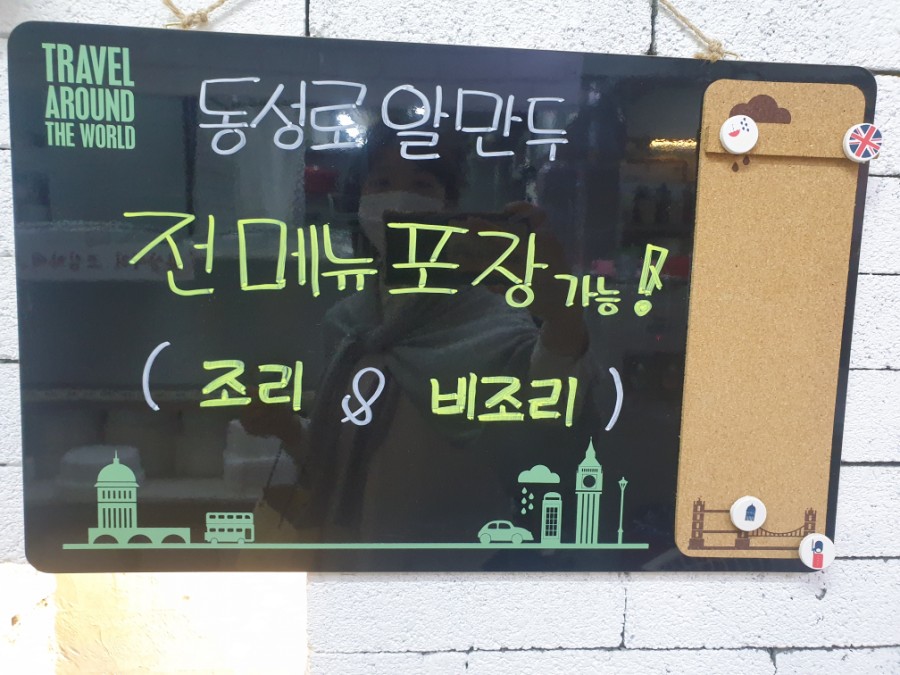 TRAVEL
AROUND
THE WORLD
동성로 알만두
전메뉴포장가능!
( 조리 & 비조리 )